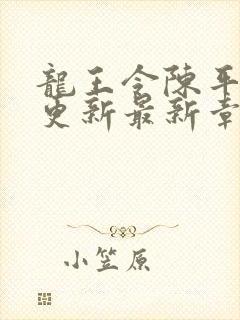 龍王令陳平
更新最新章
小笠原